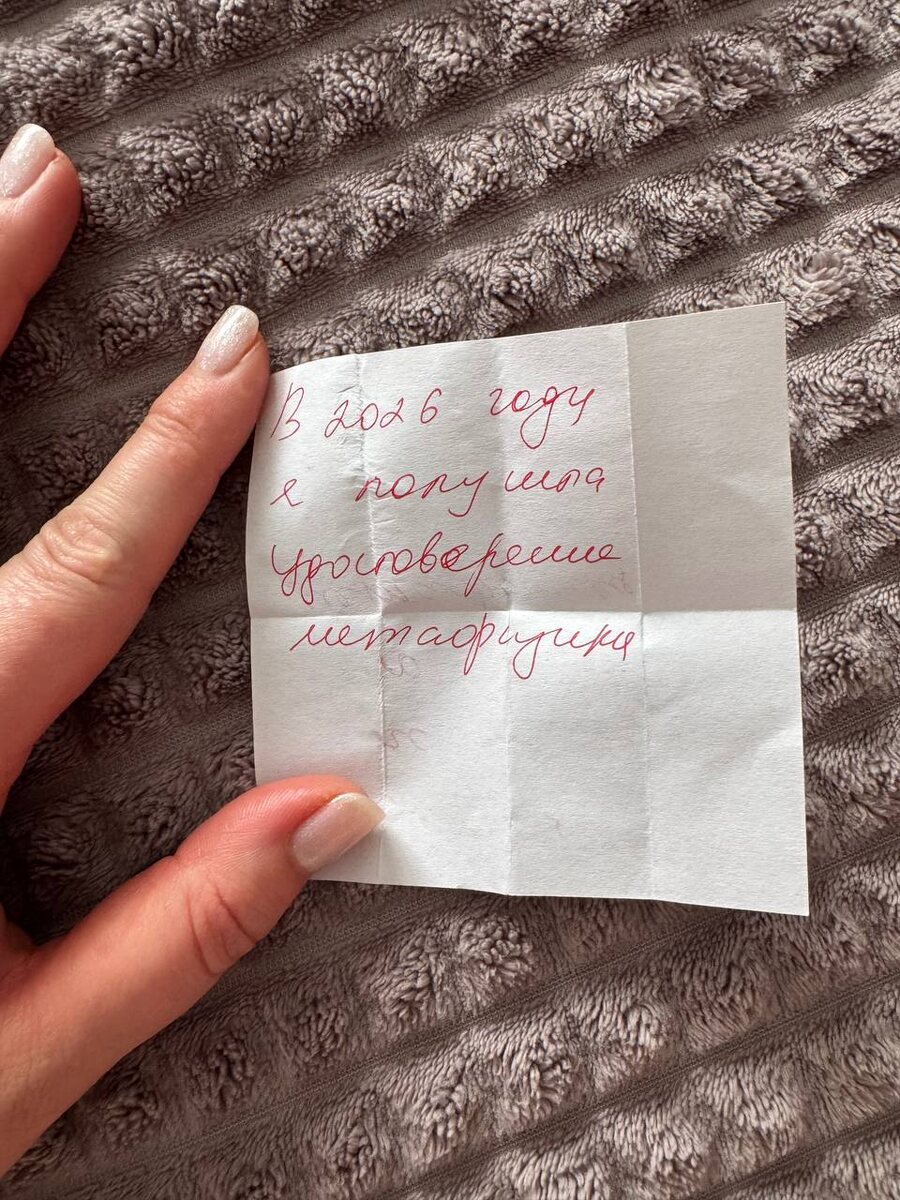 В 2026 году
я получила
удостоверение
метафизика